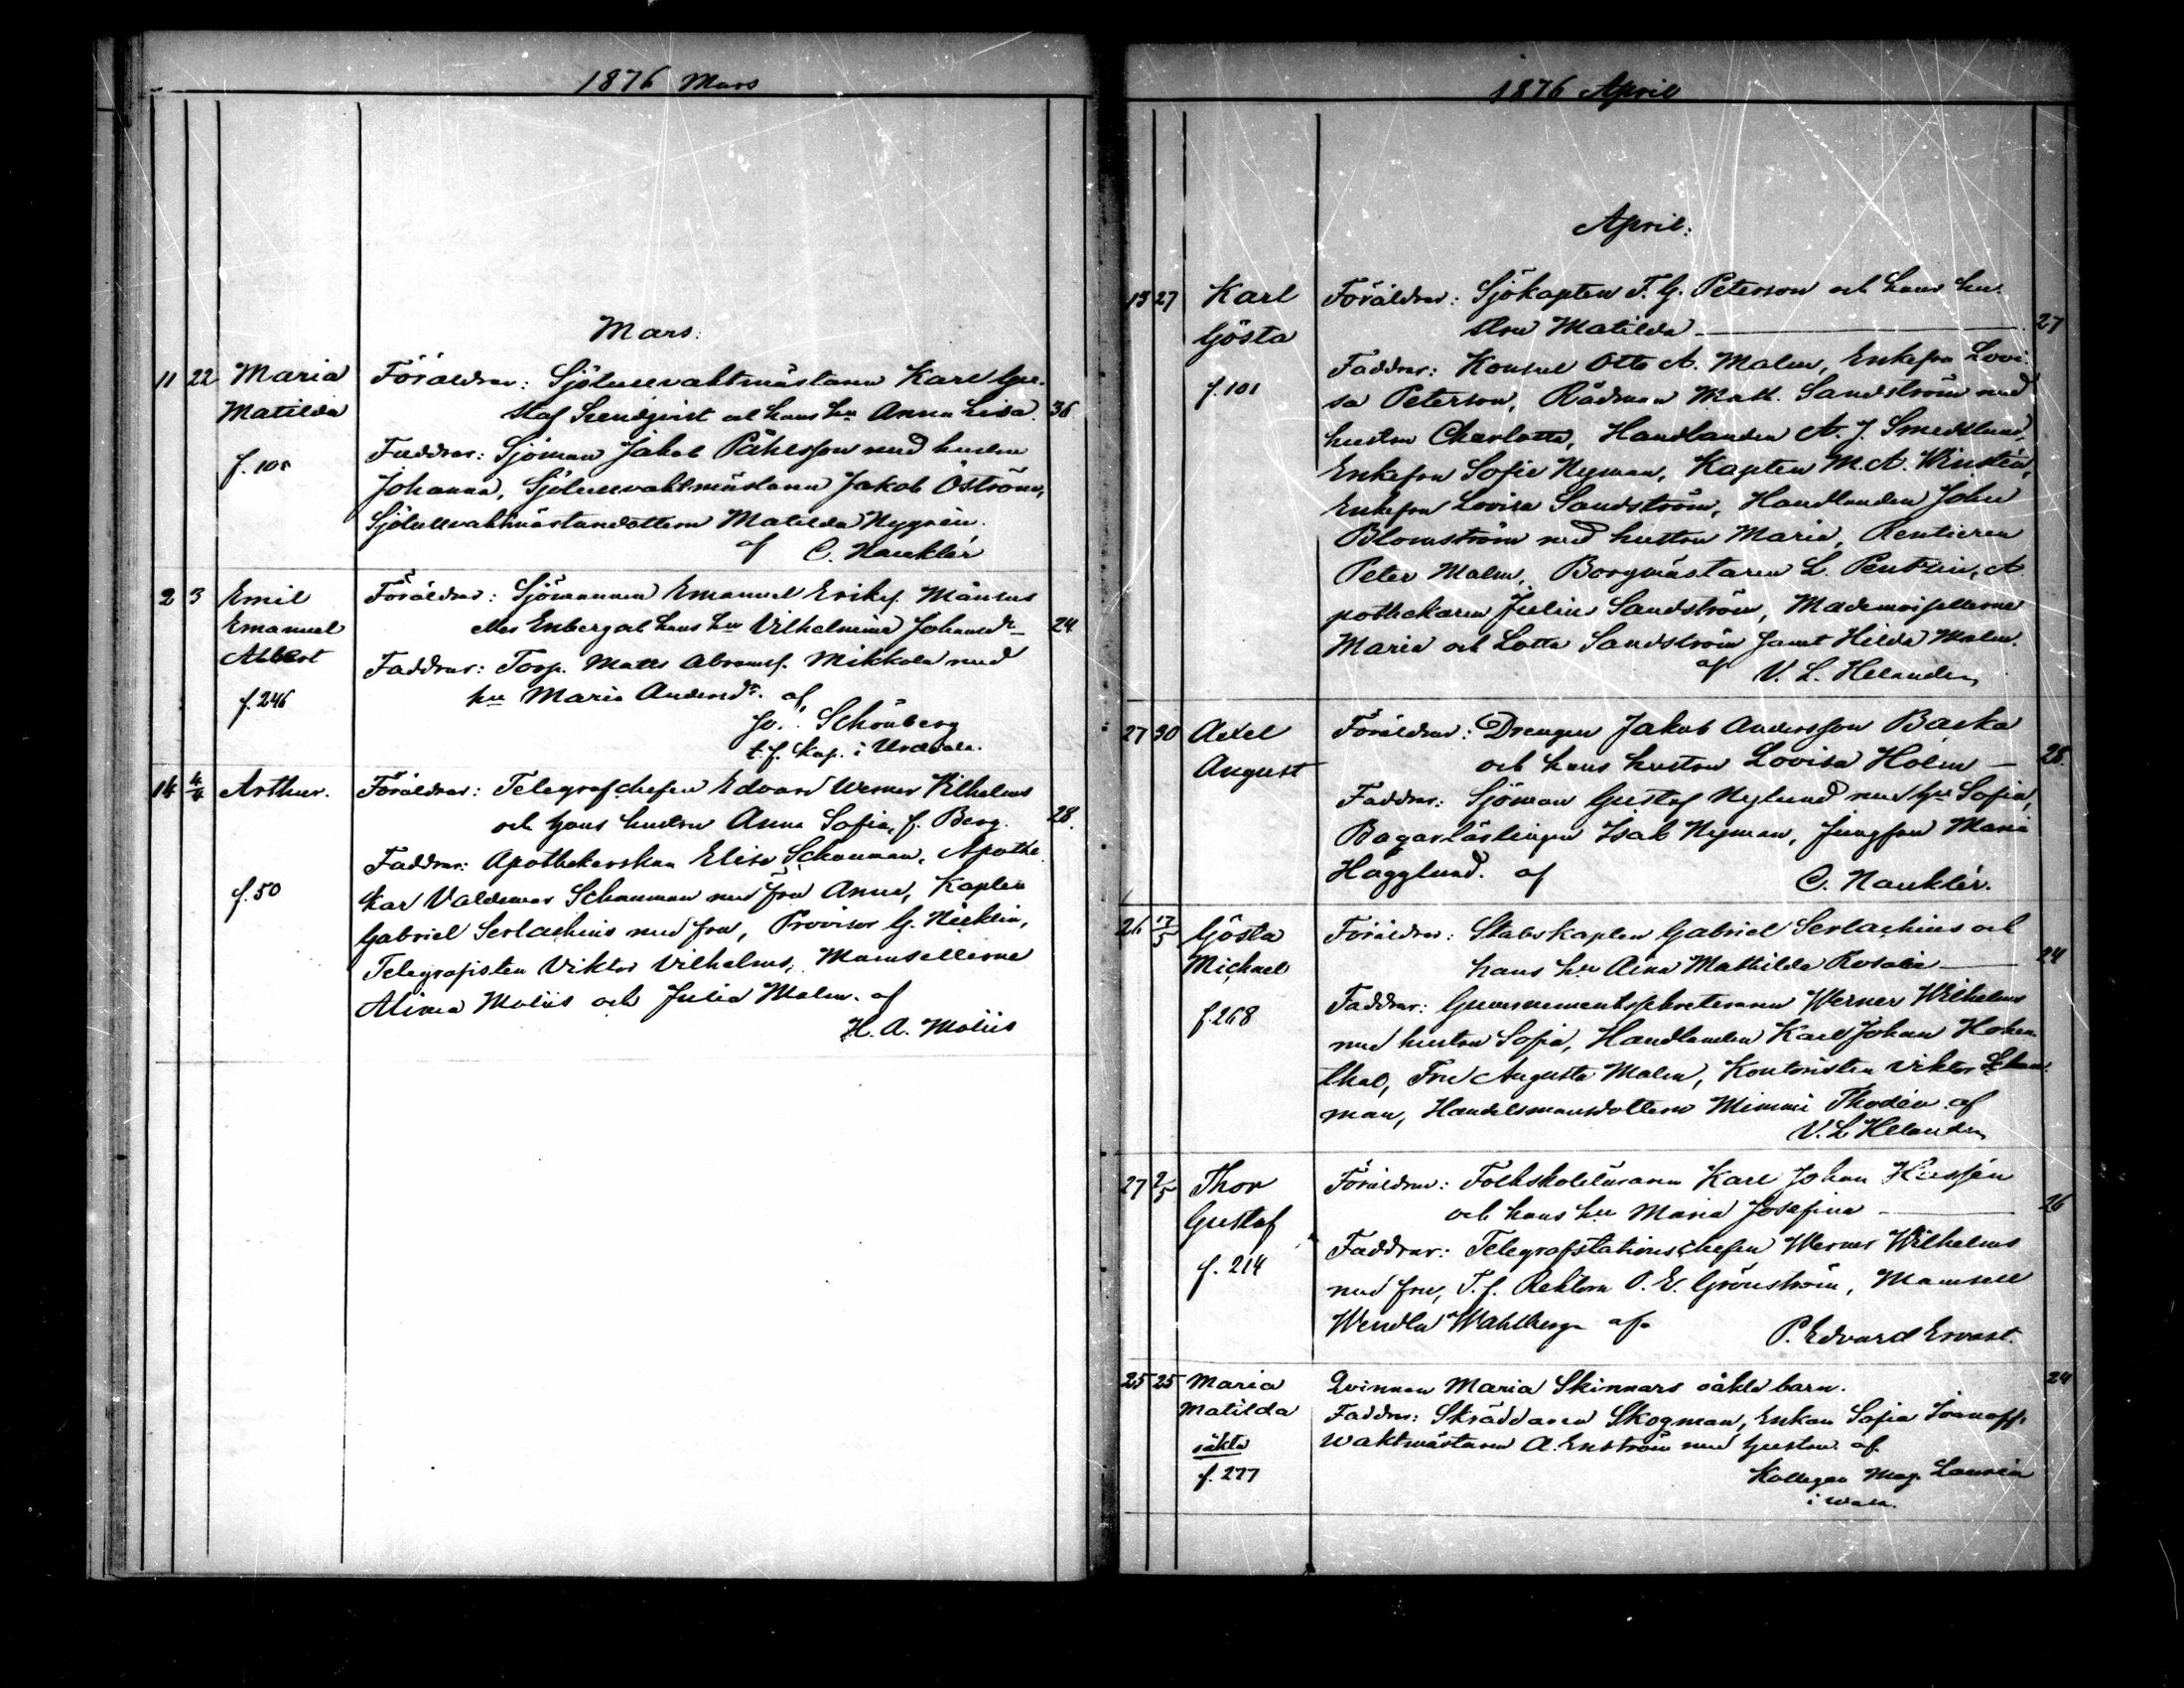 1876 Mars
Mars.
11 22 Maria Föräldrar: Sjötullvaktmästaren Karl Gu-
Matilda staf och hans hu Anna Lisa. 36.
f. 101 Faddrar: Sjöman Jakob Påhlsson med hustru
Johanna, Sjötullvaktmästaren Jakob Öström,
Sjötullvaktmästaredottern Matilda Nygrén.
af C. Nauklér
2 3 Emil Föräldrar: Sjömannen Emanuel Eriksf. Månsus
Emanuel eller Enberg och hans hu Vilhelmina Johansdr 24.
Albert Faddrar: Torp. Matts Abramsf. Mikkola med
f. 246 hu Maria Andersdr. af
Jo. Schönberg
t. f. Kap. i
14 4/4 Arthur. Föräldrar: Telegrafchefen Edvard Werner Vilhelms
och hans hustru Anna Sofia, f. Berg. 28.
Faddrar: Apothekerskan Elise Schauman, Apothe-
f. 50 kar Valdemar Schauman med fru Anna, Kapten
Gabriel Serlachius med fru, Provisor G.
Telegrafisten Viktor Vilhelms, Mamsellerne
Alina Moliis och Julia Malm. af
H. A. Moliis
1876 April
April.
13 27 Karl Föräldrar: Sjökapten F. G. Peterson och hans hu-
Gösta stru Matilda 27
f. 101 Faddrar: Konsul Otto A. Malm, Enkefru Lovi-
sa Peterson, Rådman Matt. Sandström med
hustru Charlotta, Handlanden A. J. Smedslund,
Enkefru Sofie Nyman, Kapten M. A. Winstén,
Enkefru Lovisa Sandström, Handlanden John
Blomström med hustru Maria, Rentieren
Peter Malm, Borgmästaren L. Pentzin, A-
pothekaren Julius Sandström, Mademoisellerne
Maria och Lotta Sandström samt Hilda Malm.
af V. L. Helander
27 30 Axel Föräldrar: Drengen Jakob Andersson Backa
August och hans hustru Lovisa Holm 28.
Faddrar: Sjöman Gustaf Nylund med hu Sofia,
Bagarlärlingen Isak Nyman, Jungfru Maria
Hägglund. af C. Nauklér.
26 17/5 Gösta Föräldrar: Stabskapten Gabriel Serlachius och
Michael hans hu Aina Mathilda Rosalie 24
f. 268 Faddrar: Guvernementssekreteraren Werner Wilhelms
med hustru Sofia, Handlanden Karl Johan Hohen-
thal, Fru Augusta Malm, Kontoristen Viktor Schau-
man, Handelsmansdottern Mimmi Thodén af
V. L. Helander
27 2/5 Thor Föräldrar: Folkskoleläraren Karl Johan
Gustaf och hans hu Maria Josefina 26
f. 214 Faddrar: Telegrafstationschefen Werner Wilhelms
med fru, T. f. Rektorn O. E. Grönström, Mamsell
Wendla Wahlberg af
P. Edvard Ervast.
25 25 Maria Qvinnan Maria Skinnars oäkta barn. 24
Matilda Faddrar: Skräddaren Skogman, Enkan Sofia Ivanoff,
oäkta Waktmästaren A. Enström med hustru. af
f. 277 Kollegan Mag. Laurén
i